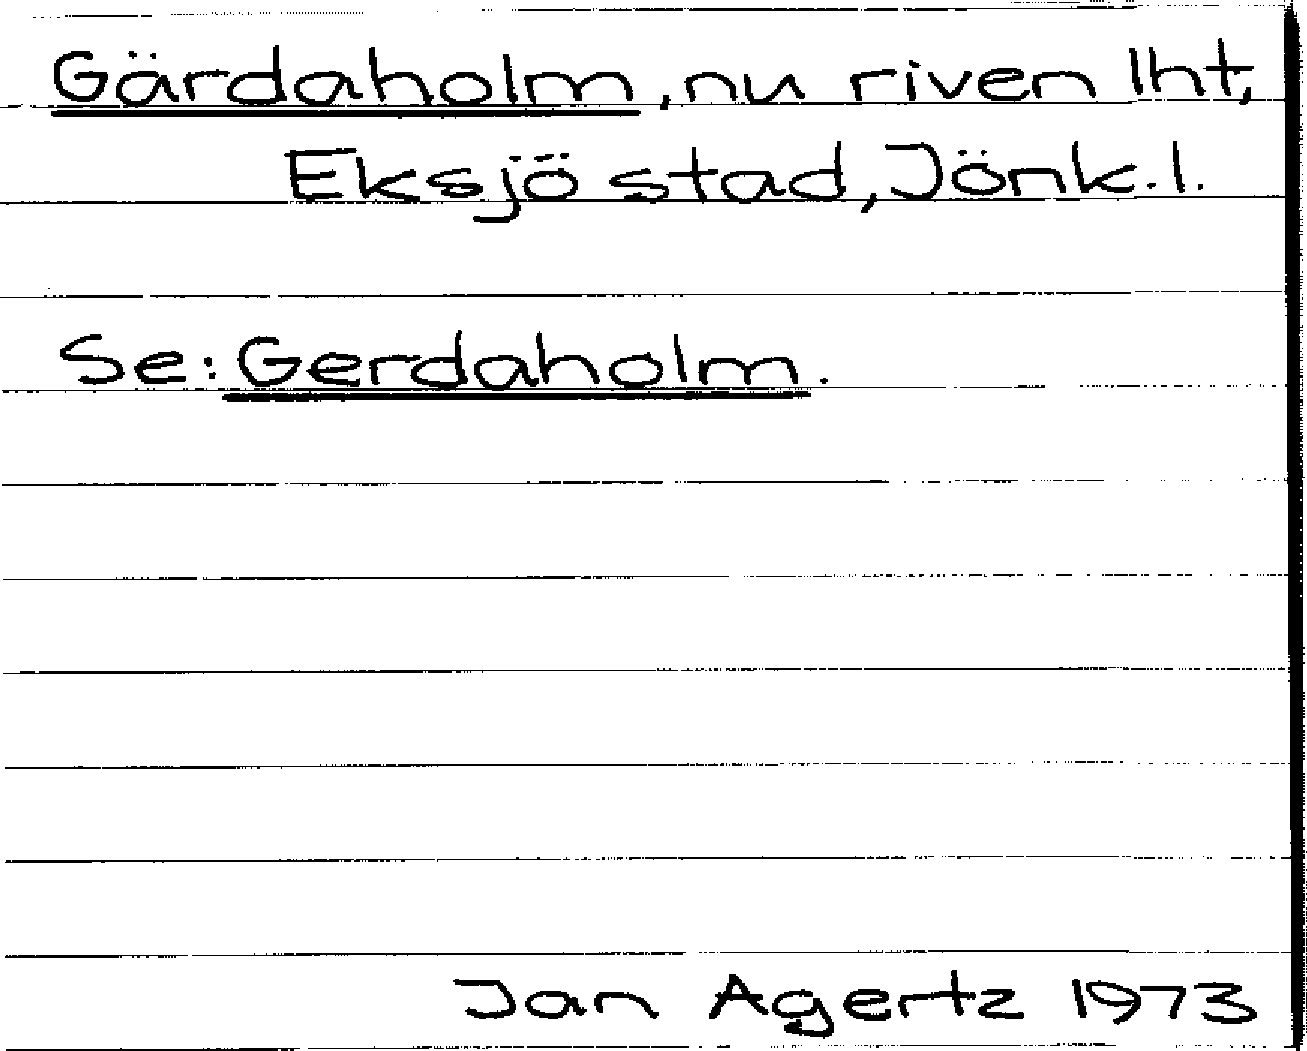 Gärdaholm, nu riven lht,
Eksjö stad, Jönk.l.
Se: Gerdaholm.
Jan Agertz 1973